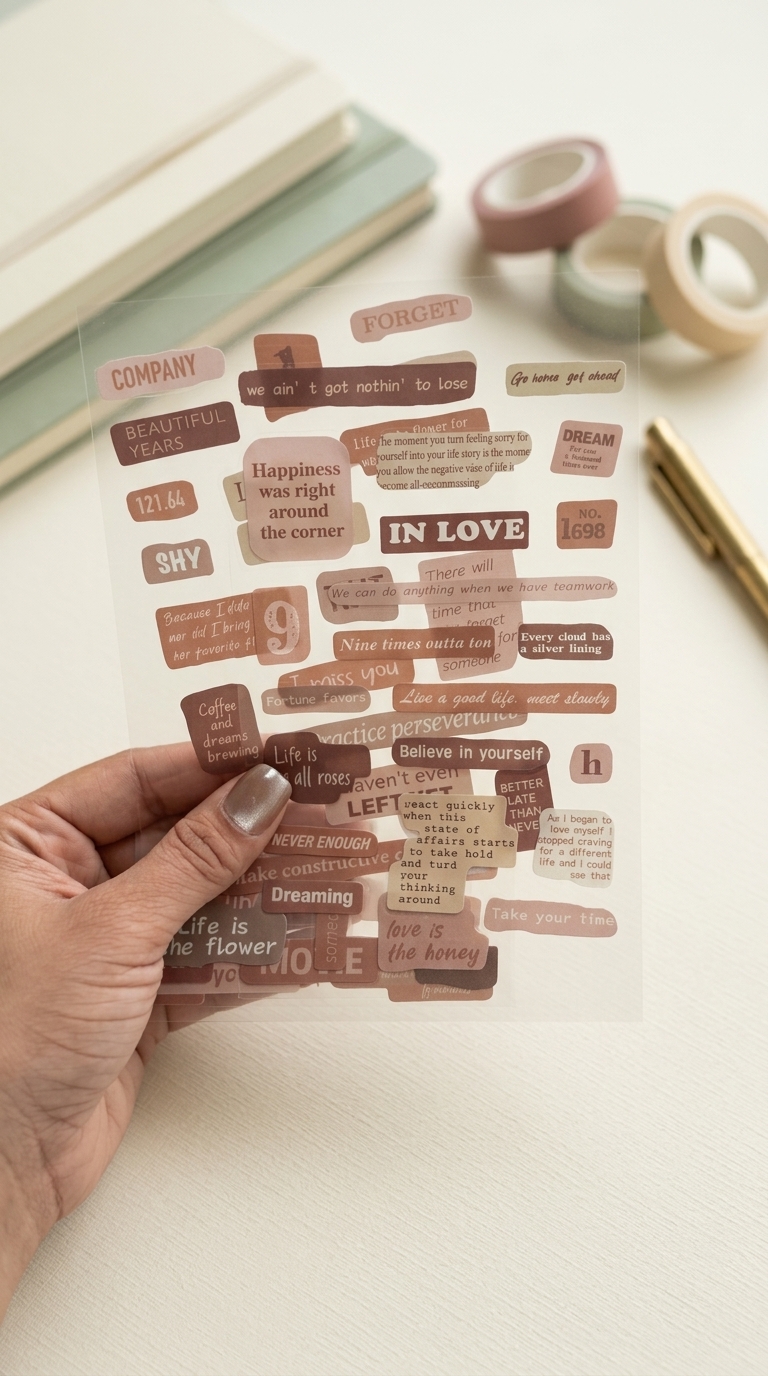 FORGET
COMPANY
we ain' t got nothin' to lose
Go home get ahead
BEAUTIFUL
YEARS
Life flower for
we
The moment you turn feeling sorry for
yourself into your life story is the mome
you allow the negative vase of life it
DREAM
For one
a thousand
times over
Happiness
was right
around
the corner
121.64
IN LOVE
NO.
1698
SHY
There will
We can do anything when we have teamwork
time that
for
someone
Because I
nor did I bring
her favorite f
9
Nine times outta ton
Every cloud has
a silver lining
I miss you
Fortune favors
Live a good life. meet slowly
Coffee
and
dreams
brewling
ractice perseverance
Life is
all roses
Believe in yourself
h
aven't even
LEFT YET
BETTER
LATE
THAN
NEVE
react quickly
when this
state of
affairs starts
to take hold
and turd
your
thinking
around
As I began to
love myself I
stopped craving
for a different
life and I could
see that
NEVER ENOUGH
make constructive
Dreaming
Take your time
Life is
he flower
somec
love is
the honey
yo
MORE